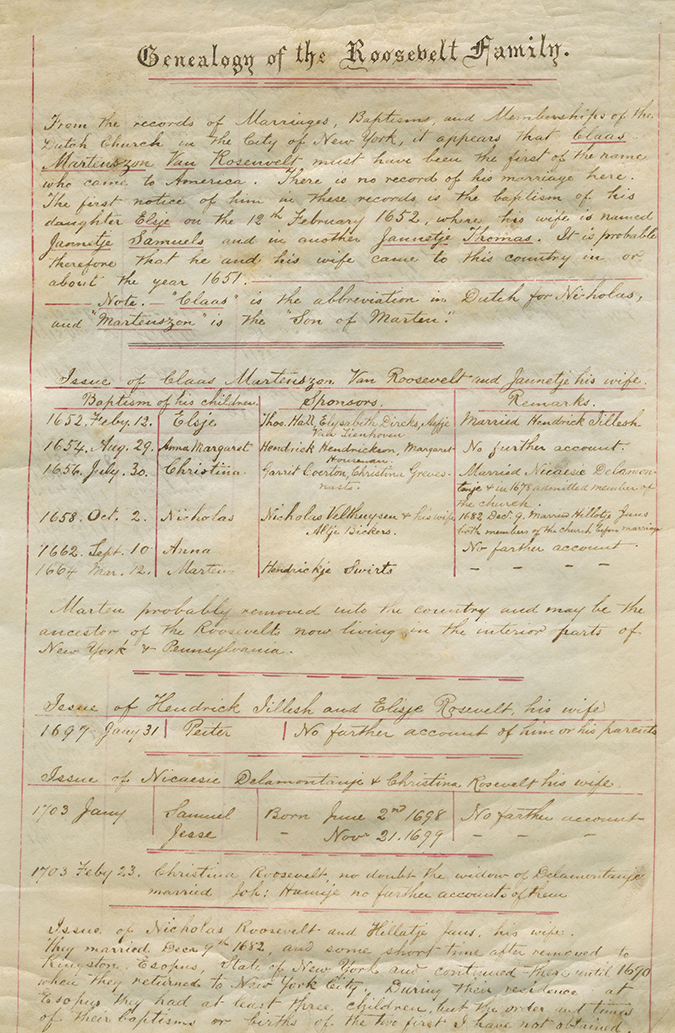 Genealogy of the Roosevelt Family.
From the records of Marriages, Baptisms, and Memberships of the
Dutch Church in the City of New York, it appears that Claas
Martenszon Van Rosenvelt must have been the first of the name
who came to America. There is no record of his marriage here.
The first notice of him in these records is the baptism of his
daughter Elsje on the 12th February 1652, where his wife is named
Jannetje Samuels and in another Jannetje Thomas. It is probable
therefore that he and his wife came to this country in or
about the year 1651.
Note. "Claas" is the abbreviation in Dutch for Nicholas,
and "Martenszon" is the "Son of Marten".
Issue of Claas Martenszon Van Roosevelt and Jannetje his wife.
Baptism of his children. Sponsors. Remarks.
1652. Feby. 12. Elsje Thos. Hall, Elysabeth Dircks, Aefje Van Tienhoven Married Hendrick Jillesh
1654. Aug. 29. Anna Margaret Hendrick Hendrickson, Margaret No further account.
1656. July. 30. Christina Garrit Christina Married Nicaesie Delamontanje & in 1678 admitted member of the church.
1658. Oct. 2. Nicholas Nicholas Velthuysen & his wife Altje Bickers. 1682 Decr. 9. Married Hillotje Jans both members of the church before marriage
1662. Sept. 10 Anna No farther account
1664 Mar. 12. Marten Hendrickje Swirts - - - -
Marten probably removed into the country and may be the
ancestor of the Roosevelts now living in the interior parts of
New York & Pennsylvania.
Issue of Hendrick Jillesh and Elisje Rosevelt, his wife
1697 Jany 31 Peiter No farther account of him or his parents
Issue of Nicaesie Delamontanje & Christina Rosevelt his wife.
1703 Jany Samuel Born June 2nd 1698 No farther account
Jesse - Novr 21. 1699 - - - -
1703 Feby 23. Christina Roosevelt, no doubt the widow of Delamontanje
married Joh: no farther accounts of them
Issue of Nicholas Roosevelt and Hillatje Jans, his wife.
They married Decr 9th 1682, and some short time after removed to
Kingston, Esopus, State of New York and continued there until 1690
when they returned to New York City. During their residence at
Esopus they had at least three children, but the order and times
of their baptisms or births of the two first I have not obtained